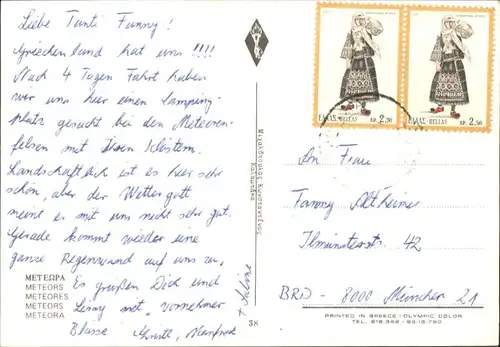 Liebe Tanti Fanny!
Griechenland hat uns !!!!
Nach 4 Tagen Fahrt haben
wir uns hier einen Camping-
platz gesucht bei den Meteoren-
felsen mit ihren Klöstern.
Landschaftlich ist es hier sehr
schön, aber der Wettergott
meint es mit uns nicht sehr gut.
Gerade kommt wieder eine
ganze Regenwand auf uns zu.
Es grüßen Dich und
Lenny mit "vornehmer
Blässe Christl, Manfred
+ Sabine
ΜΕΤΕΩΡΑ
METEORS
METEORES
METEORS
METEORA
38
ΕΛΛΑΣ-HELLAS ΔΡ. 2,50
ΕΛΛΑΣ-HELLAS ΔΡ. 2,50
An Frau
Fanny Altheimer
Ilmünsterstr. 42
BRD - 8000 München 21
PRINTED IN GREECE - OLYMPIC COLOR